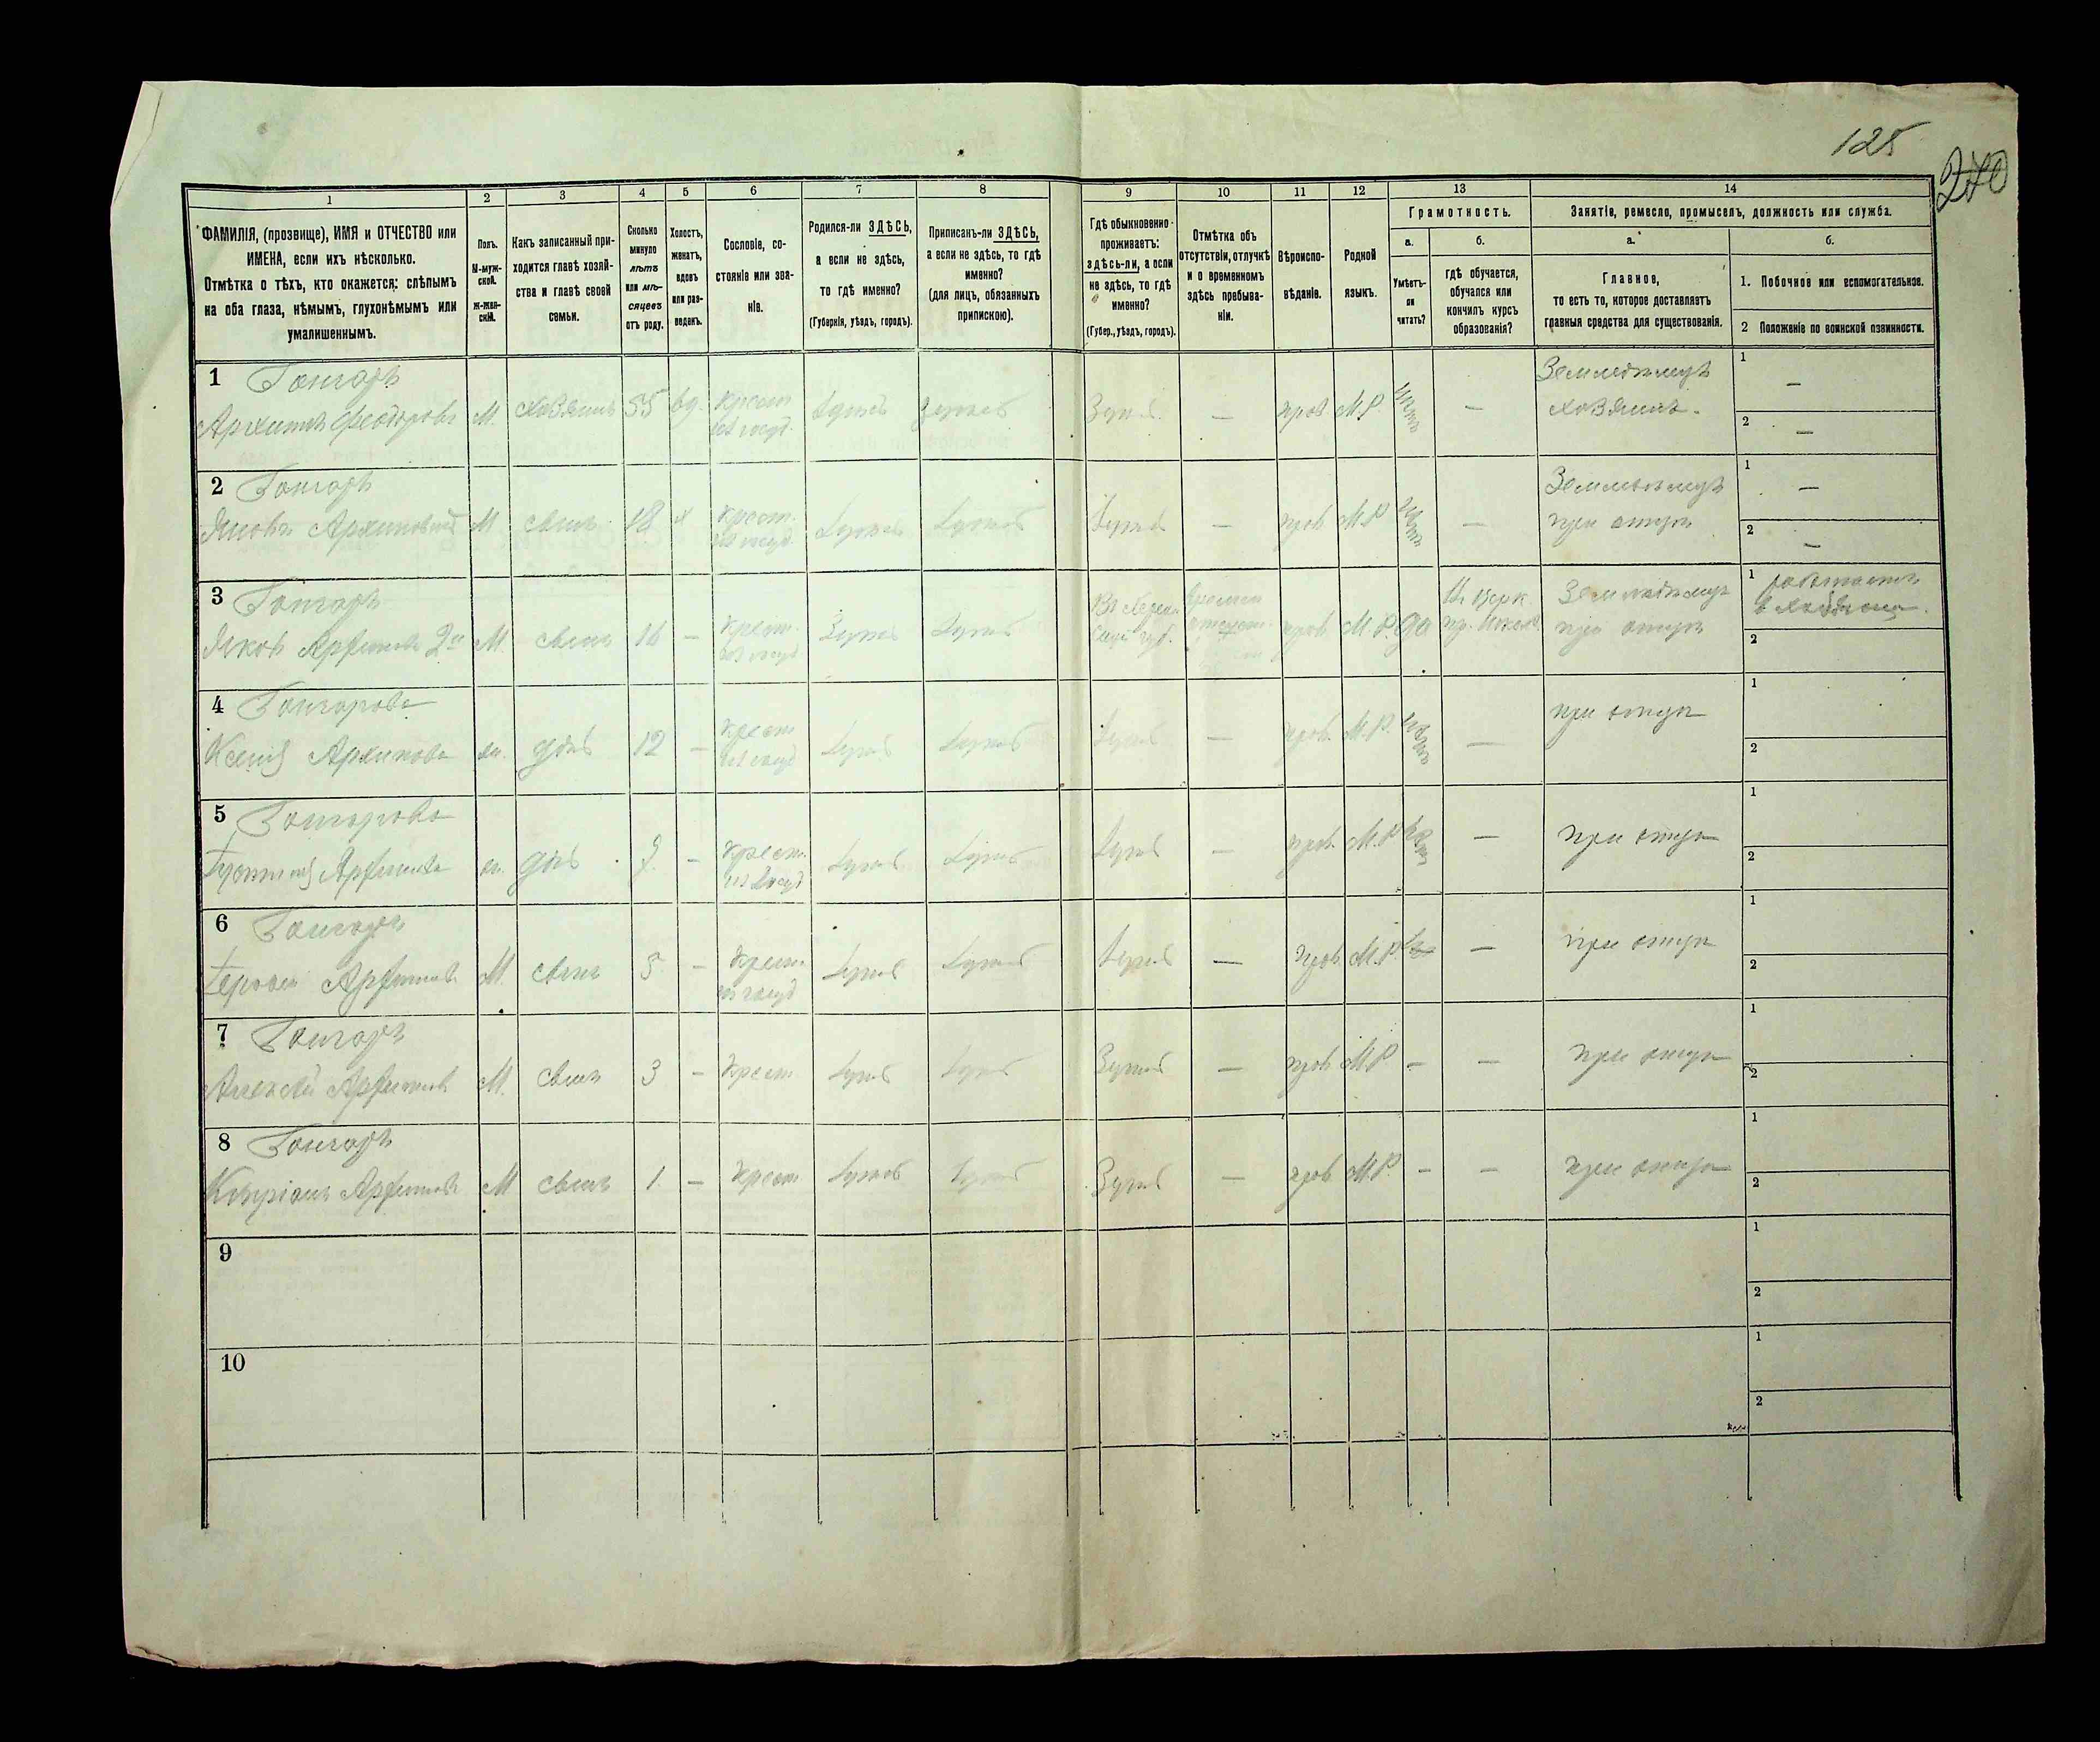 125
270
1
2
3
4
5
6
7
8
9
10
11
12
13
14
ФАМИЛІЯ, (прозвище), ИМЯ и ОТЧЕСТВО или
ИМЕНА, если ихъ нѣсколько.
Отмѣтка о тѣхъ, кто окажется: слѣпымъ
на оба глаза, нѣмымъ, глухонѣмымъ или
умалишеннымъ.
Полъ.
М-муж-
ской.
ж-жен-
скій.
Какъ записанный при-
ходится главѣ хозяй-
ства и главѣ своей
семьи.
Сколько
минуло
лѣтъ
или мѣ-
сяцевъ
отъ роду.
Холостъ,
женатъ,
вдовъ
или раз-
веденъ.
Сословіе, со-
стояніе или зва-
ніе.
Родился-ли ЗДѢСЬ,
а если не здѣсь,
то гдѣ именно?
(Губернія, уѣздъ, городъ).
Приписанъ-ли ЗДѢСЬ,
а если не здѣсь, то гдѣ
именно?
(для лицъ, обязанныхъ
припискою).
Гдѣ обыкновенно
проживаетъ:
здѣсь-ли, а если
не здѣсь, то гдѣ
именно?
(Губер., уѣздъ, городъ).
Отмѣтка объ
отсутствіи, отлучкѣ
и о временномъ
здѣсь пребыва-
ніи.
Вѣроиспо-
вѣданіе.
Родной
языкъ.
Грамотность.
а.
Умѣетъ-
ли
читать?
б.
гдѣ обучается,
обучался или
кончилъ курсъ
образованія?
Занятіе, ремесло, промыселъ, должность или служба.
а.
Главное,
то есть то, которое доставляетъ
главныя средства для существованія.
б.
1. Побочное или вспомогательное.
2 Положеніе по воинской повинности.
1 Гончаръ
Архипъ Феодоровъ М. хозяинъ 55 вд. крест. Здѣсь Здѣсь Здѣсь — прав. М.Р. — Земледѣлецъ
хозяинъ.
1 —
2 —
2 Гончаръ
Архиповичъ М сынъ 18 х крест. Здѣсь Здѣсь Здѣсь — прав М.Р — Земледѣлецъ
при отцѣ
1 —
2 —
3 Гончаръ
Яковъ 2й М сынъ 16 — крест. Здѣсь Здѣсь прав М.Р. да Земледѣлецъ
при отцѣ
1
2
4 Гончарова
Ксенія Архипова ж. дочь 12 — крест Здѣсь Здѣсь Здѣсь — прав. М.Р. — при отцѣ
1
2
5 Гончарова
ж. дочь 9. — крест. Здѣсь Здѣсь Здѣсь — прав. М.Р — при отцѣ
1
2
6 Гончаръ
М. сынъ 5 — крест. Здѣсь Здѣсь Здѣсь — прав. М.Р. — при отцѣ
1
2
7 Гончаръ
Алексѣй М. сынъ 3 — крест Здѣсь Здѣсь Здѣсь — прав М.Р. — — при отцѣ
1
2
8 Гончаръ
Кипріанъ М сынъ 1. — крест Здѣсь Здѣсь Здѣсь — прав М.Р. — — при отцѣ
1
2
9
1
2
10
1
2